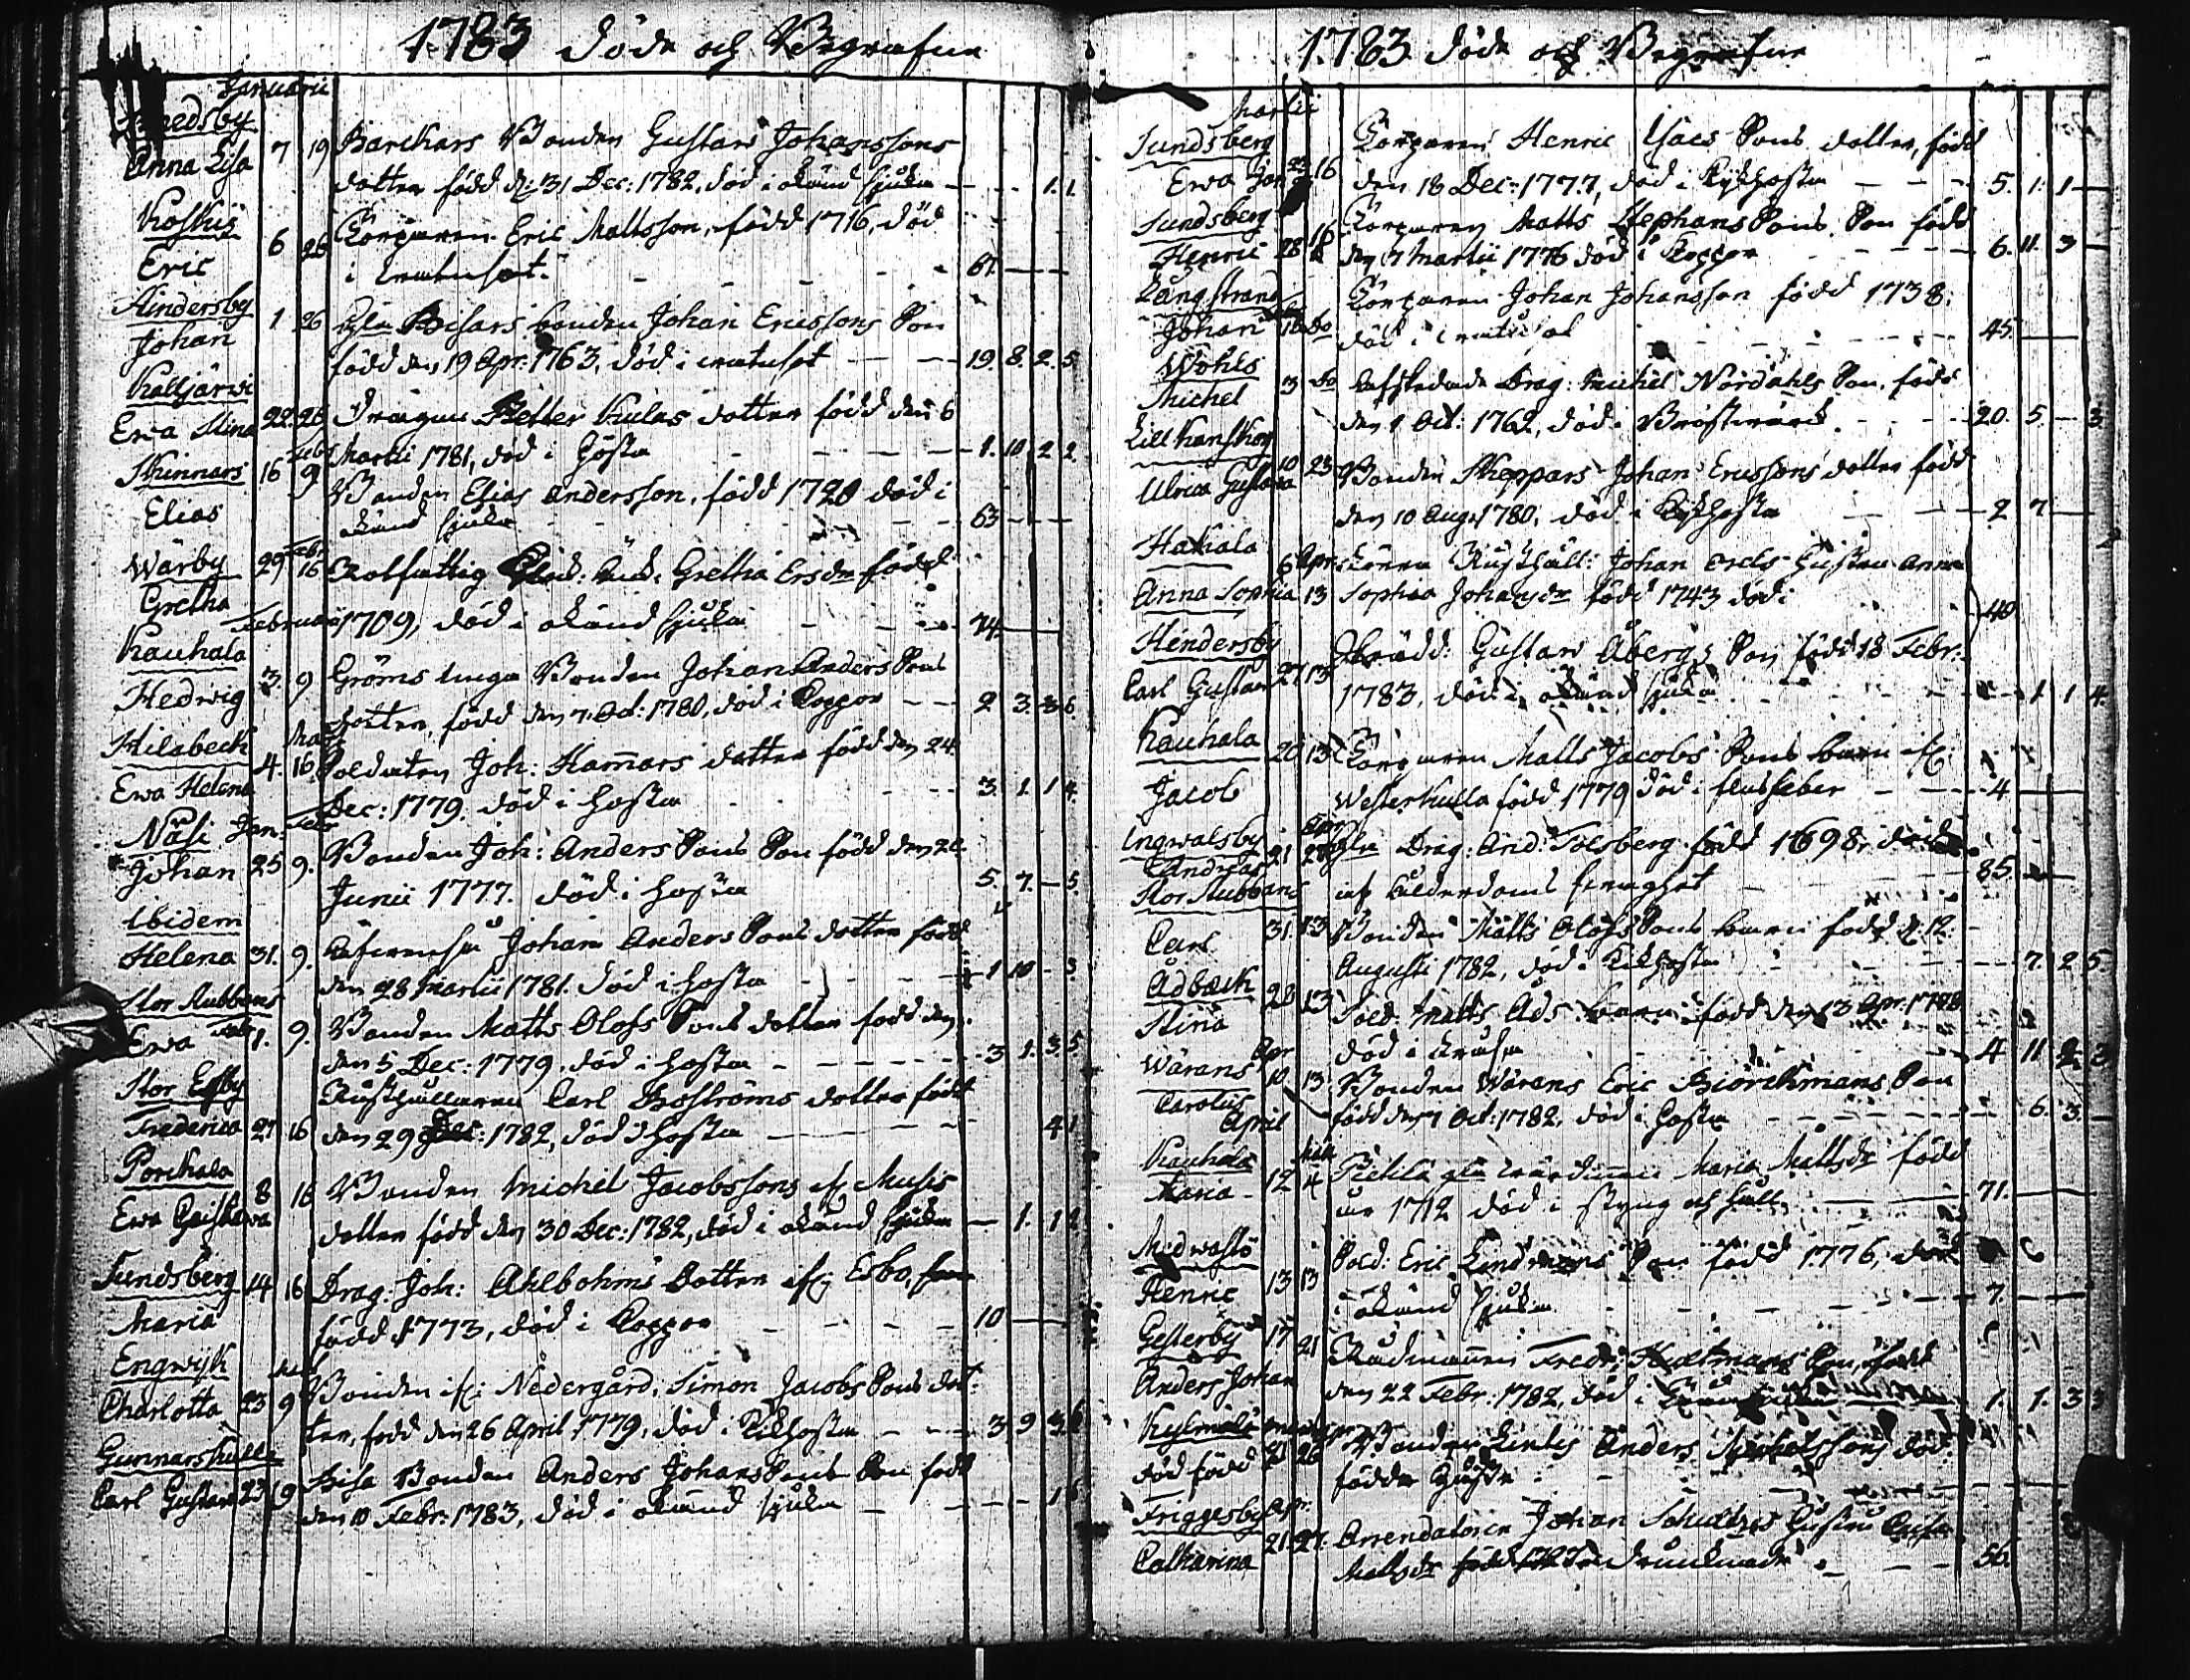 1783 döde och Begrafne
Januarii
Anna Lisa 7 19 Barckars Bonden Gustav Johanssons
dotter född d: 31 Dec: 1782, död i okänd sjuka 1. 1.
Koskis
Eric 6 26 Torparen Eric Mattsson, född 1716, död
i 67.
Hindersby
Johan 1 26 bonden Johan Ericssons Son
född den 19 Apr: 1763, död i 19. 8. 2. 5
Kalljärwi
Ewa Stina 22. 26 Dragun Petter Kulas dotter född den 6
Martii 1781, död i Hosta 1. 10 2 2.
Skinnars 16 Feb. 9
Elias Bonden Elias Andersson, född 1720 död i
okänd sjuka 63
Wärby 29 Febr 16 Rotfattig Gretha Ersdr född
Gretha
Februarii 1709, död i okänd sjuka 74.
Kauhala
Hedwig 3. 9 Gröms unga Bonden Johan Anders Sons
dotter, född den 7. Oct: 1780, död i Koppor 2 3. 3 6.
Hilabeck
Ewa Helena 4. 16 Soldaten Joh: Hamars dotter född den 24
Dec: 1779. död i hosta 3. 1. 1 4.
Näsi Jan: Febr
Johan 25 9. Bonden Joh: Anders Sons Son född den 20
Junii 1777. död i hosta 5. 7. — 5.
Ibidem
Helena 31. 9. Johan Anders Sons dotter född
den 28 Martii 1781. död i hosta 1 10 - 3.
Stor Rubbans
Ewa Febr 1. 9. Bonden Matts Olofs Sons dotter född den
den 5 Dec: 1779, död i hosta 3 1. 3. 5
Stor Esby
Frederica 27 16 Rusthållaren Carl Boströms dotter född
den 29 Dec: 1782, död i hosta 4 1
Porckala
Ewa Gustawa 8 16 Bonden Michel Jacobssons if: Musis
dotter född den 30 Dec: 1782, död i okänd sjuka 1. 1 2
Sundsberg
Maria 14 16 Drag: Joh: Ahlbohms Dotter if: Esbo,
född 1773, död i Koppor 10
Engwijk
Charlotta 23 9 Bonden if: Nedergård, Simon Jacobs Sons dot-
ter, född den 26 April 1779, död i Kikhosta 3 9 3 6
Gunnarskulla
Carl Gustav 23 9 Bisa Bonden Anders Johans Sons Son född
den 10 Febr: 1783, död i okänd sjuka 1 6
1783 döde och Begrafne
Martii
Sundsberg
Ewa 23 16 Torparen Henric Isacs Sons dotter, född
den 18 Dec: 1777, död i Kykhosta 5. 1. 1
Sundsberg
Henric 28 16 Torparen Matts Stephans Sons Son född
den 7 Martii 1776 död i Koppor 6. 11. 3
Långstrand
Johan 18 do Torparen Johan Johansson född 1738,
död i 45.
Wohls
Michel 3 do Afskedade Drag: Michel Nordahls Son, född
den 1 Oct: 1762, död i Bröstwärk 20. 5. 3
Lill Kanskog
Ulrica Gustava 10 23 Bonden Skeppars Johan Ericssons dotter född
den 10 Aug: 1780, död i Kykhosta 2 7
Hakala
Anna Sophia 6 Apr: 13 Rusthåll: Johan Hustru Anna
Sophia Johansdr född 1743 död i 40
Hindersby
Carl Gustav 27 13 Gustav Åbergs Son född 18 Febr:
1783, död i okänd sjuka 1 1 4.
Kauhala
Jacob 20 13 Torparen Matts Jacobs Sons barn if:
Westerkulla född 1779 död i flussfeber 4
Ingwalsby
Andreas 21 27 Drag: And: Folsberg född 1698, död
af ålderdoms svaghet 85
Stor Rubbans
Carl 31. 13 Bonden Matts Olofs Sons barn född d. 12.
Augusti 1782, död i Kikhosta 7. 2 5.
Adback
Stina 28 13 Sold: Matts Ads barn född den 13 Apr: 1778
död i 4 11 2 3
Wärans Apr
Carolus 10 13 Bonden Wärans Eric Biörckmans Son
April född den 7 Oct: 1782, död i hosta 6. 3.
Kauhala
Maria 12 4 Pickla Maria Mattsdr född
år 1712 död i styng och håll 71.
Medwastö
Henric 13 13 Sold: Eric Lindmans Son född 1776, död
i okänd sjuka 7.
Gesterby 17 21
Anders Johan Rådmannen Fredr: Hultmans Son, född
den 22 Febr: 1782, död i 1. 1. 3 3
Kylmälä
död född 26 Bonden Anders Michelssons död
födde
Friggesby Apr.
Catharina 21. 27. Arrendatorn Johan Schultzes Hustru
Mattsdr född 1727 56.